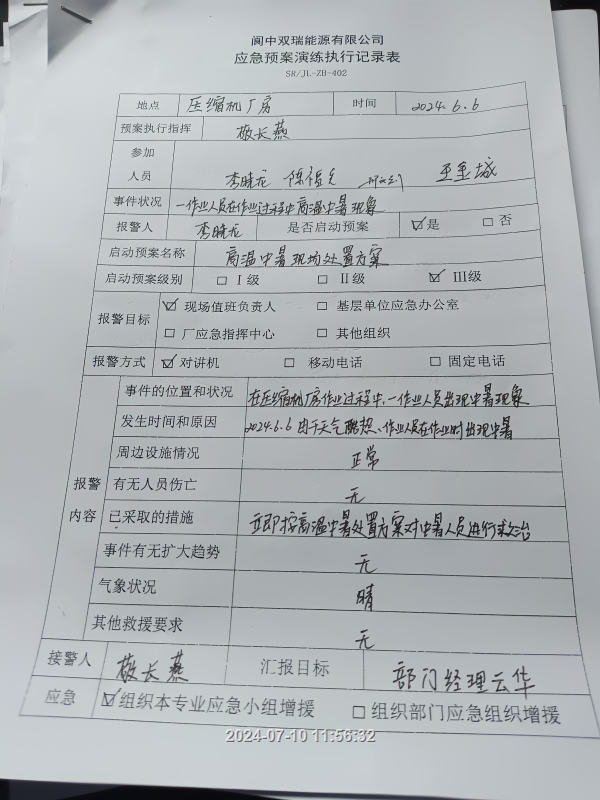 阆中双瑞能源有限公司
应急预案演练执行记录表
SR/JL-ZB-402
地点 压缩机厂房 时间 2024.6.6
预案执行指挥 敬长燕
参加
人员 李晓龙
事件状况 一作业人员在作业过程中高温中暑现象
报警人 李晓龙 是否启动预案 ☑是 □否
启动预案名称 高温中暑现场处置方案
启动预案级别 □ I级 □ II级 ☑ III级
报警目标 ☑ 现场值班负责人 □ 基层单位应急办公室
□ 厂应急指挥中心 □ 其他组织
报警方式 ☑ 对讲机 □ 移动电话 □ 固定电话
报警内容
事件的位置和状况 在压缩机厂房作业过程中,一作业人员出现中暑现象
发生时间和原因 2024.6.6 由于天气酷热、作业人员在作业时出现中暑
周边设施情况 正常
有无人员伤亡 无
已采取的措施 立即按高温中暑处置方案对中暑人员进行救治
事件有无扩大趋势 无
气象状况 晴
其他救援要求 无
接警人 敬长燕 汇报目标 部门经理云华
应急 ☑组织本专业应急小组增援 □组织部门应急组织增援
2024-07-10 11:56:32